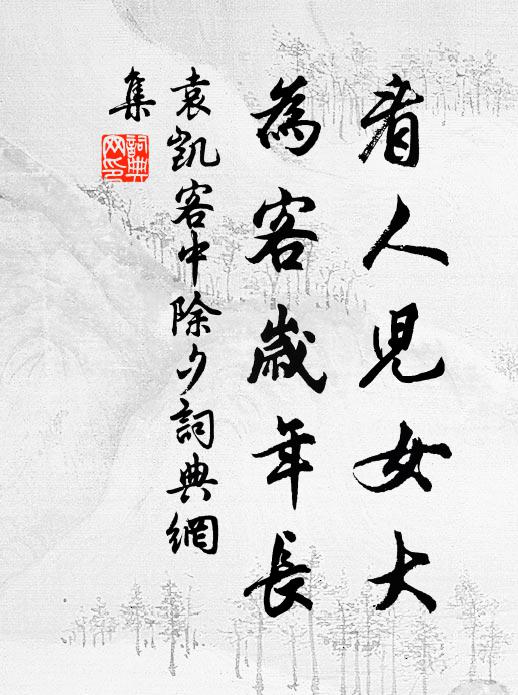 看人兒女大
為客歲年長
袁凱客中除夕詞典網
集
詞典
网